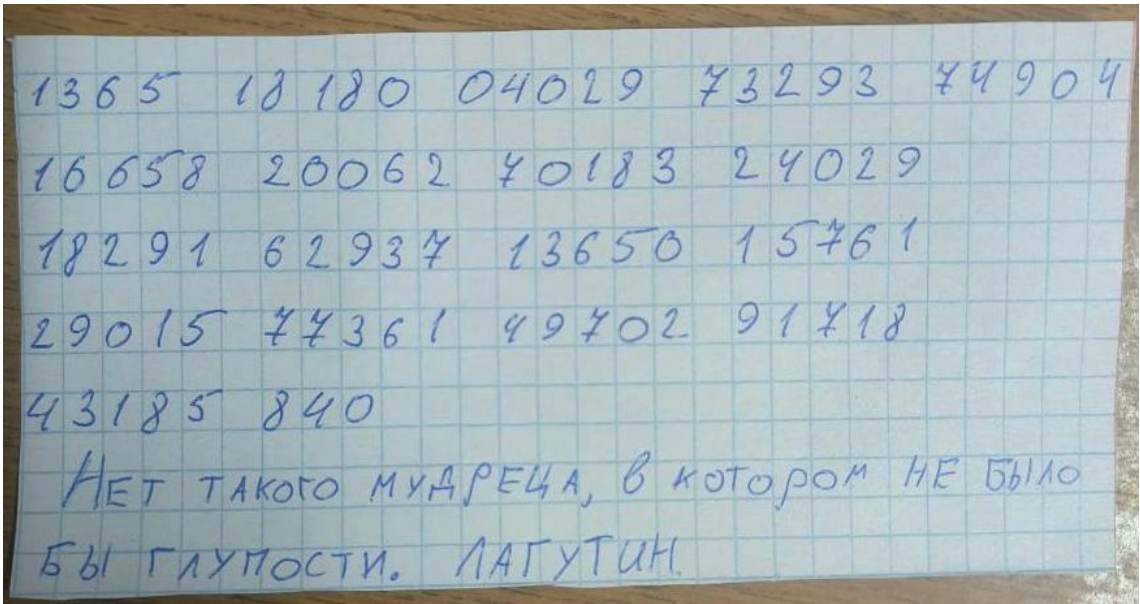 1365 18180 04029 73293 74904
16658 20062 70183 24029
18291 62937 13650 15761
29015 77361 49702 91718
43185 840
НЕТ ТАКОГО МУДРЕЦА, В КОТОРОМ НЕ БЫЛО
БЫ ГЛУПОСТИ. ЛАГУТИН.